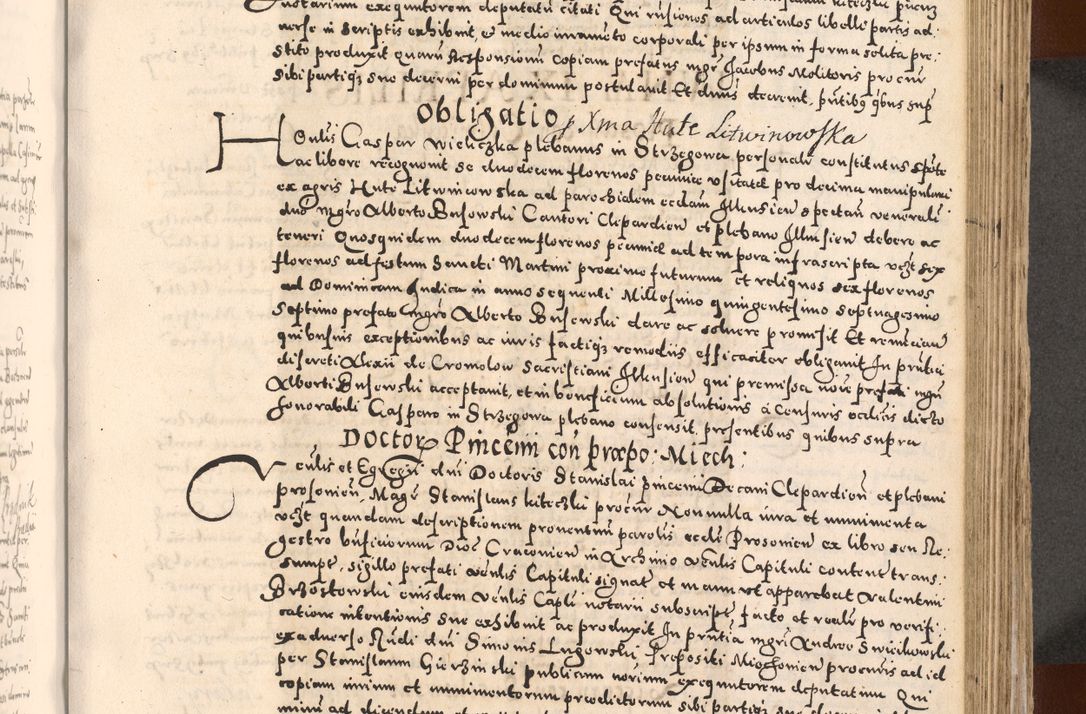 verse in scriptis exhibuit, et medio iuramento corporali per ipsum in forma solita pre:
stito produxit quarum responsionum copiam prefatus mgr Jacobus Molitoris procur
sibi partiq suo decerni per dominum postulauit Et dnus decreuit, pntibq qbus sup
Obligatio p Xma Hute Litwinowska
Honlis Caspar Wieliczka plebanus in Strzegowa personalr constitutus sponte
ac libere recognouit se duodecem florenos pecuniæ usitatæ pro decima manipulari
ex agris Hute Litwincowska ad parochialem ecclam Illkusien spectan venerabili
dno mgro Alberto Busowski Cantori Clepardien et plebano Illkusien debere ac
teneri Quosquidem duodecem florenos pecuniæ ad tempora infrascripta vczt sex
florenos ad festum Sancti Martini proximo futurum et reliquos sex florenos
ad Dominicam Judica in anno sequenti Millesimo quingentesimo septuagesimo
septimo prefato mgro Alberto Busewski dare ac soluere promisit Et renuncian
quibusuis exceptionibus ac iuris factiq remediis efficaciter obligauit In pntia
discreti Alexii de Cromolow Sacristiani Illkusien qui premissa noie prefati mgri
Alberti Busewski acceptauit, et in beneficium absolutionis a censuris ecclicis dicto
honorabili Casparo in Strzegowa plebano consensit, presentibus quibus supra
Doctor Pinceni con præpo: Miech:
Venlis et Egregii dni Doctoris Stanislai Pinceni Decani Clepardien et plebani
prosonien, Magr Stanislaus kiteczki procur Nonnulla iura et munimenta
vczt quandam descriptionem prouentuum parolis eccliæ Prosonien ex libro seu Re:
gestro bnficiorum Dioc Cracouien in Archiuio Venlis Capituli content trans:
sumpt, sigillo prefati Venlis Capituli signat et manu ut apparebat Valentini
Brzostowski eiusdem Venlis Capli notarii subscript facto et realr pro verifi:
catione intentionis sue exhibuit ac produxit In pntia mgri Andreæ Swieikowski
ex aduerso Nudi dni Simonis Lugowski Prepositi Miechouien procuris ad id
per Stanislaum Gierzinski publicum norium exequutorem deputatum Qui
copiam iurium et munimentorum predictorum sibi partiq